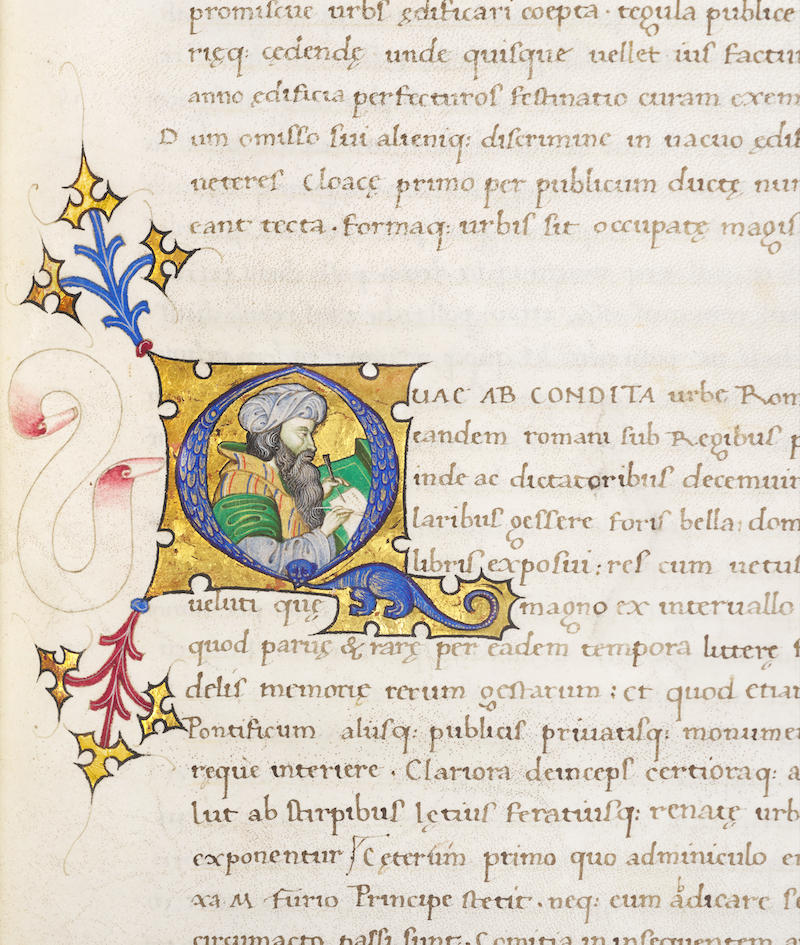 promiscue urbs ędificari coepta · tegula publice
rięq: cędendę unde quisque uellet ius factum
anno ędificia perfecturos festinatio curam exem
Dum omisso sui alieniq: discrimine in uacuo ędif
ueteres Cloacę primo per publicum ductę nun
eant tecta · formaq: urbis sit occupatę magis
QUAE AB CONDITA urbe Rom
eandem romani sub Regibus p
inde ac dictatoribus decemuir
laribus gessere foris bella: dom
libris exposui: res cum uetus
ueluti quę magno ex interuallo
quod paruę & rarę per eadem tempora litterę f
delis memorię rerum gestarum : et quod etiam
Pontificum aliisq: publicis priuatisq: monumen
reque interiere . Clariora deinceps certioraq: a
lut ab stirpibus lętius feratiusq: renatę urb
exponentur Ceterum primo quo adminiculo er
xa M furio Principe stetit . neq: eum adicare
circumacto passi sunt . Comitia in insequentem